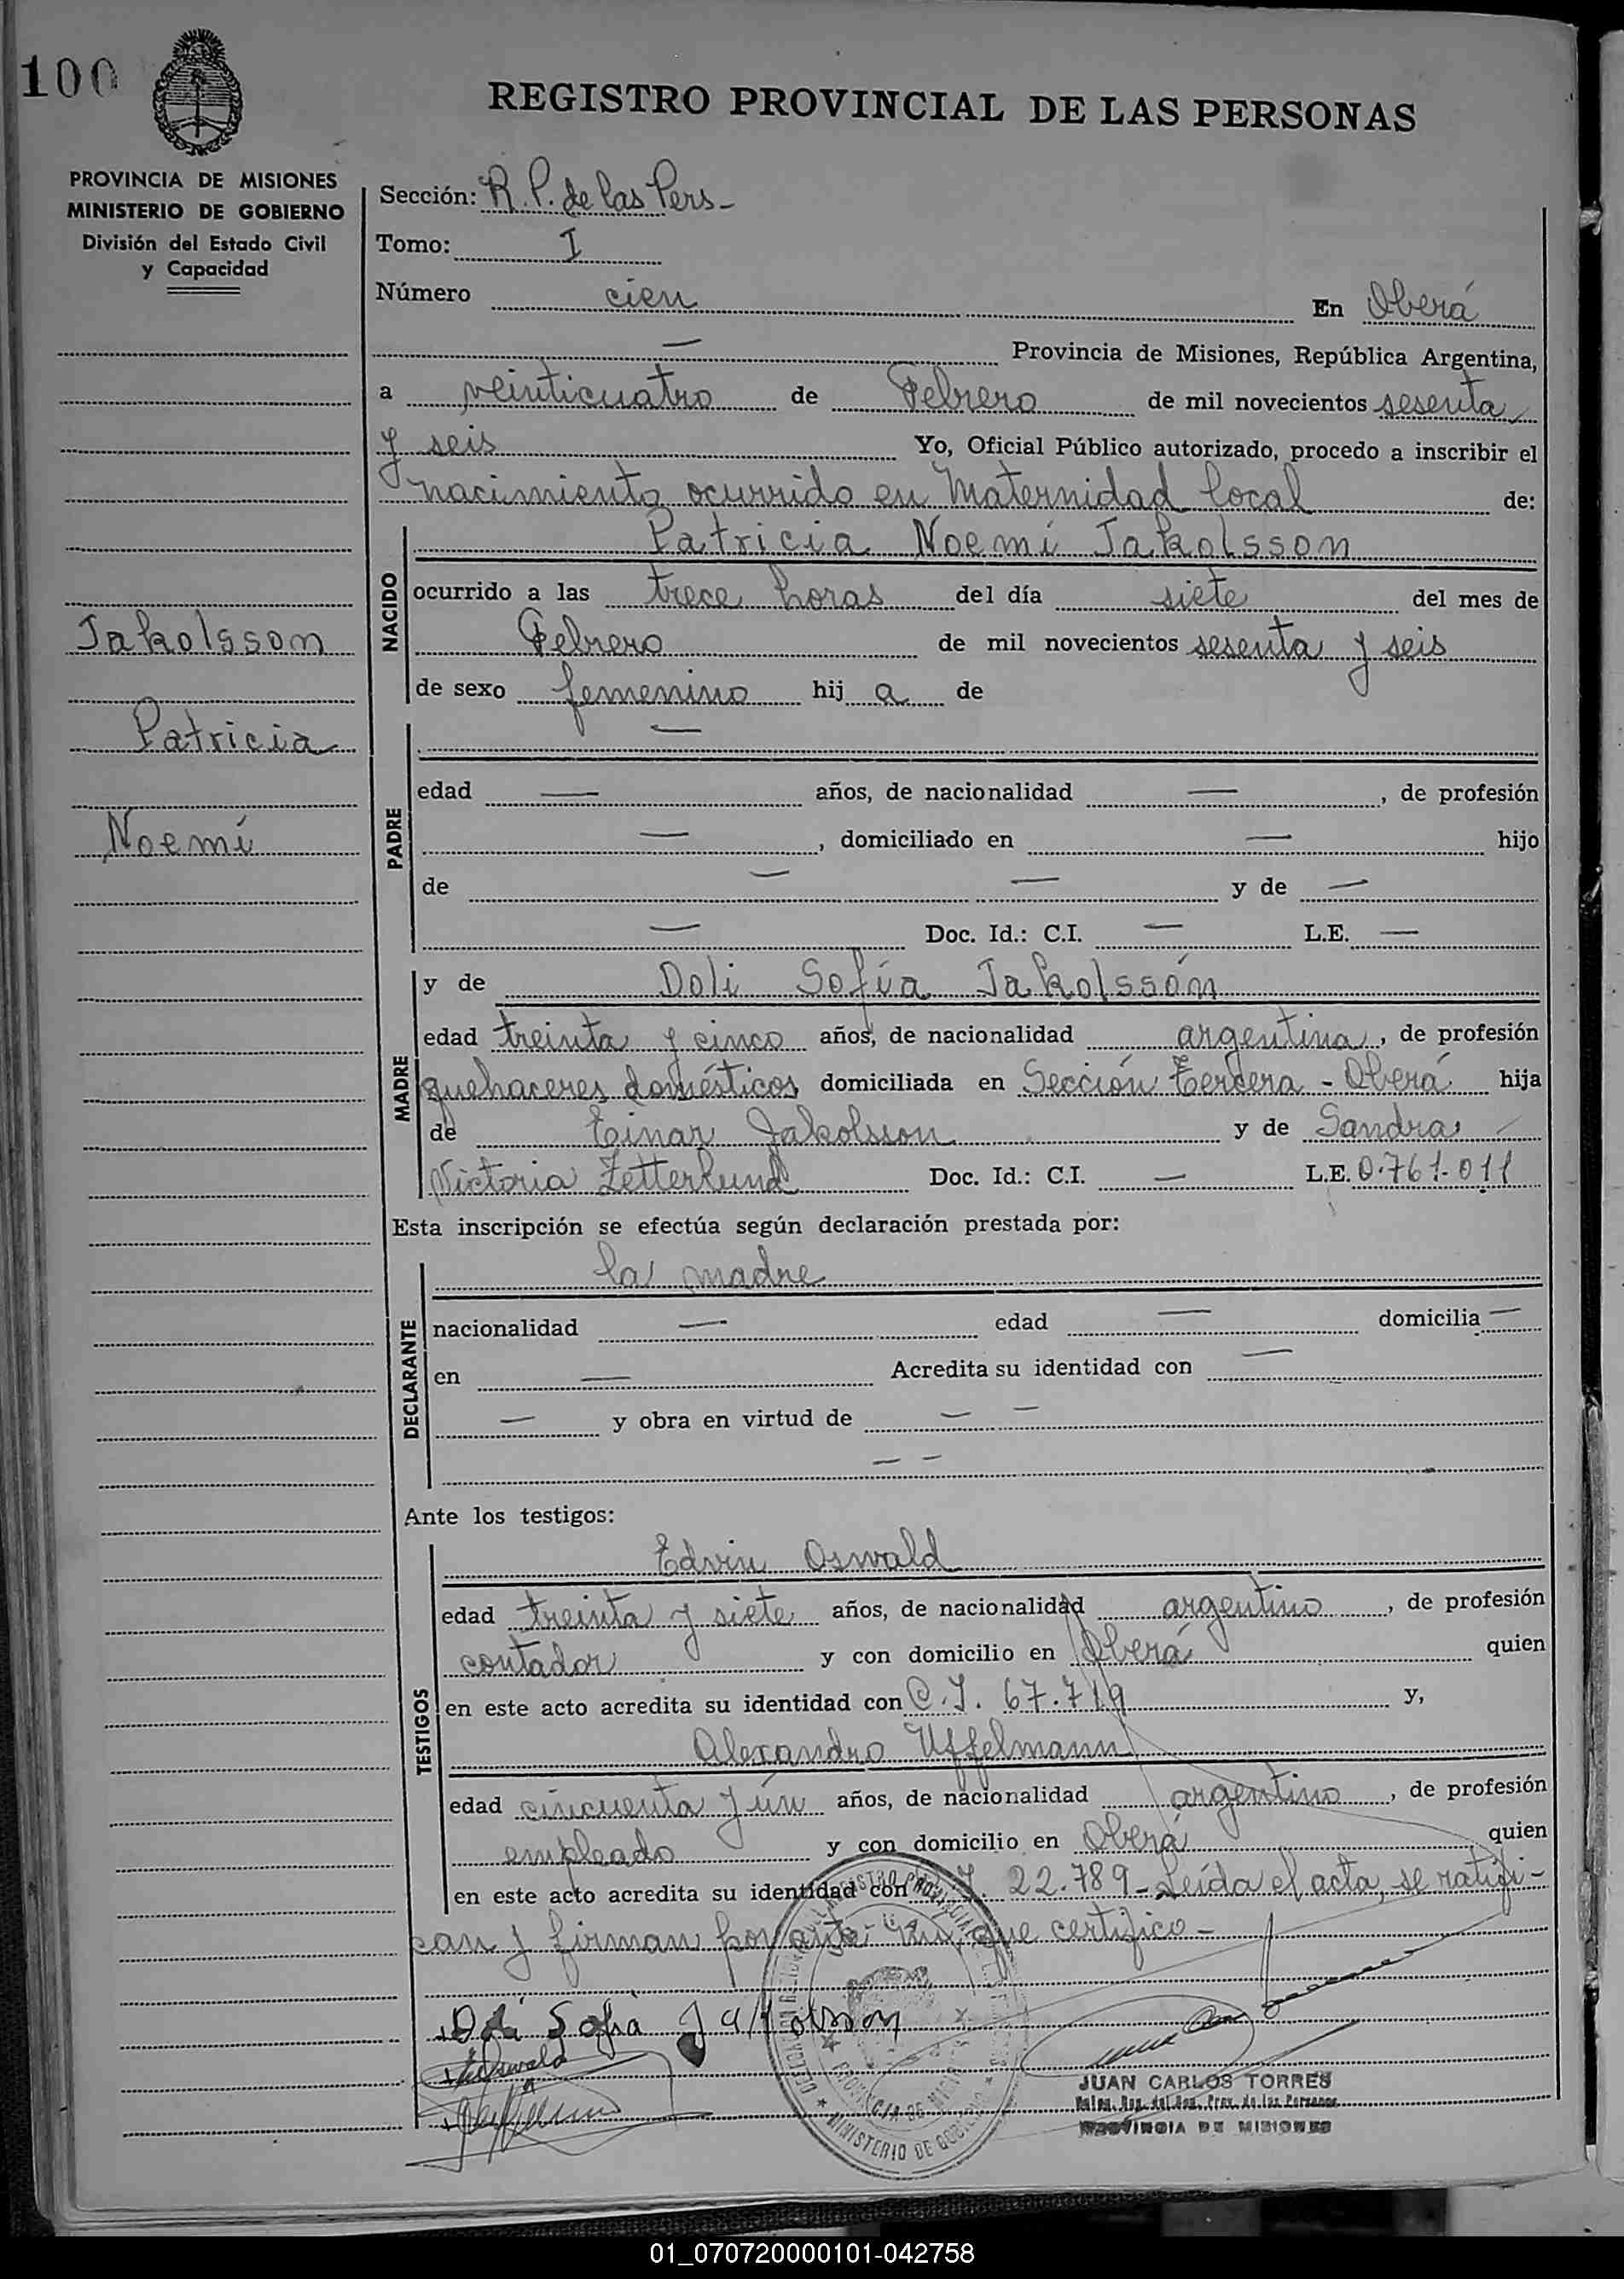 100
REGISTRO PROVINCIAL DE LAS PERSONAS
PROVINCIA DE MISIONES
MINISTERIO DE GOBIERNO
División del Estado Civil
y Capacidad
Sección: R. P. de las Pers-
Tomo: I
Número cien En Oberá
— Provincia de Misiones, República Argentina,
a veinticuatro de Febrero de mil novecientos sesenta
y seis Yo, Oficial Público autorizado, procedo a inscribir el
nacimiento ocurrido en Maternidad local de:
NACIDO
Patricia Noemí Jakolsson
ocurrido a las trece horas del día siete del mes de
Febrero de mil novecientos sesenta y seis
de sexo femenino hij a de
Jakolsson
Patricia
Noemí
PADRE
—
edad — años, de nacionalidad —, de profesión
—, domiciliado en — hijo
de — — y de —
— Doc. Id.: C.I. — L.E. —
MADRE
y de Doli Sofía Jakolssón
edad treinta y cinco años, de nacionalidad argentina, de profesión
quehaceres domésticos domiciliada en Sección Tercera - Oberá hija
de Einar Jakolsson y de Sandra
Victoria Zetterlund Doc. Id.: C.I. — L.E. 0.761.011
Esta inscripción se efectúa según declaración prestada por:
DECLARANTE
la madre
nacionalidad — edad — domicilia —
en — Acredita su identidad con —
— y obra en virtud de — —
— —
Ante los testigos:
TESTIGOS
Edvin Oswald
edad treinta y siete años, de nacionalidad argentino, de profesión
contador y con domicilio en Oberá quien
en este acto acredita su identidad con C.I. 67.719 y,
Alexandro Uffelmann
edad cincuenta y ún años, de nacionalidad argentino, de profesión
empleado y con domicilio en Oberá quien
en este acto acredita su identidad con I. 22.789 - Leída el acta, se ratifi-
can y firman por ante mí, que certifico -
Doli Sofia Jakolsson
EOswald
JUAN CARLOS TORRES
PROVINCIA DE MISIONES
MINISTERIO DE GOBIERNO
01_070720000101-042758